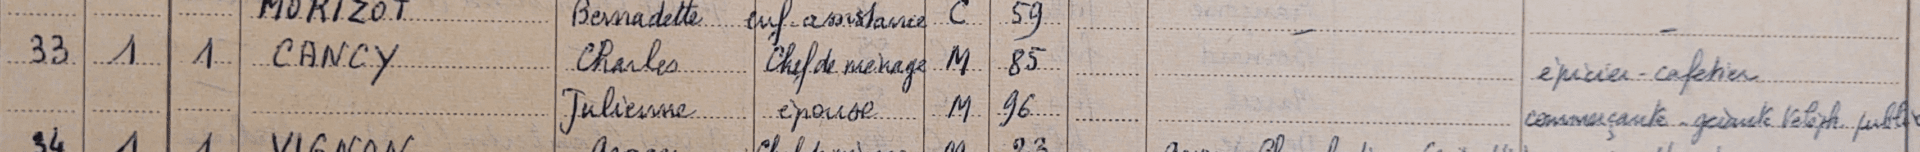 MORIZOT Bernadette enf. assistance C 59 –
33 1 1 CANCY Charles Chef de ménage M 85 épicier - cafetier
Julienne épouse M 96 commerçante - gérante téléph. public
34 1 1 VIGNON M